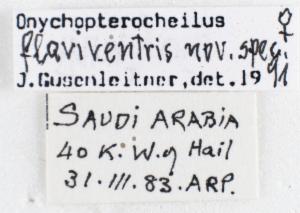 Onychopterocheilus ♀
flaviventris nov. spec.
J.Gusenleitner, det. 19 91
SAUDI ARABIA
40 K. W. of Hail
31. III. 83. ARP.